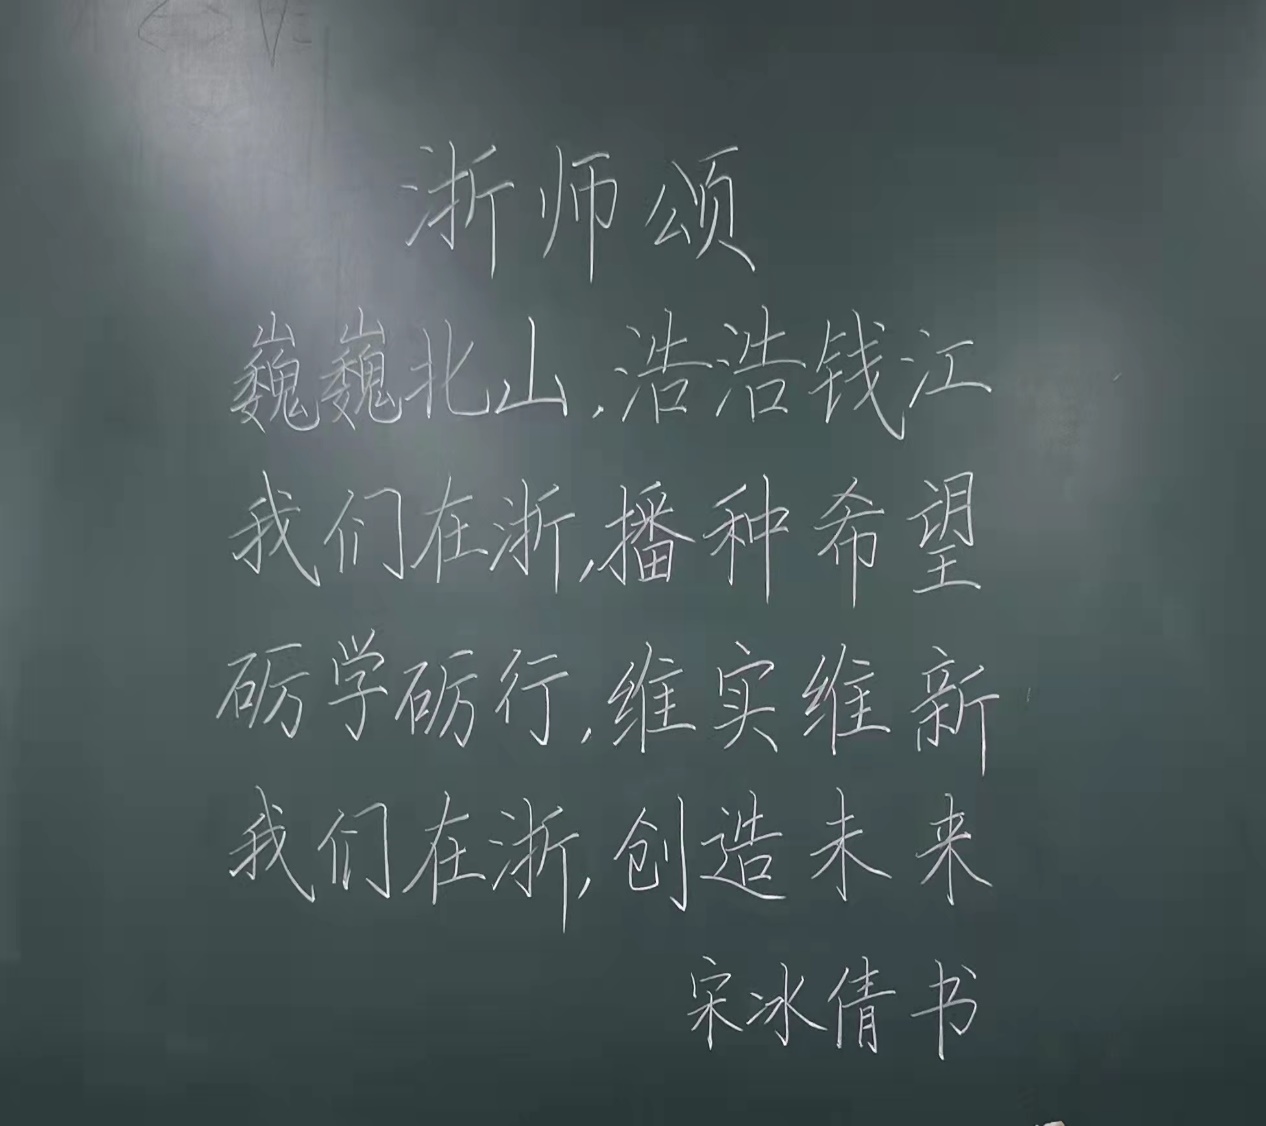 浙师颂
巍巍北山,浩浩钱江
我们在浙,播种希望
砺学砺行,维实维新
我们在浙,创造未来
宋冰倩书